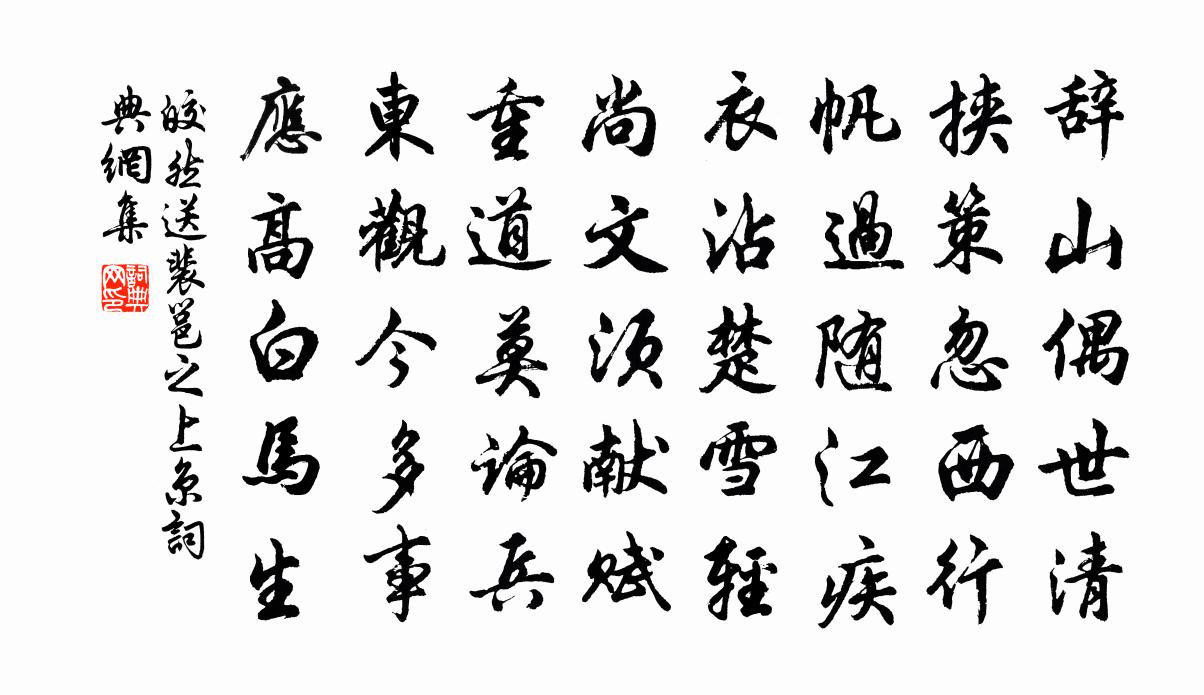 辞山偶世清
挾策忽西行
帆過随江疾
衣沾楚雪輕
尚文须献賦
重道莫論兵
東觀今多事
應高白馬生
皎然送裴邕之上京詞
典網集
詞典网印